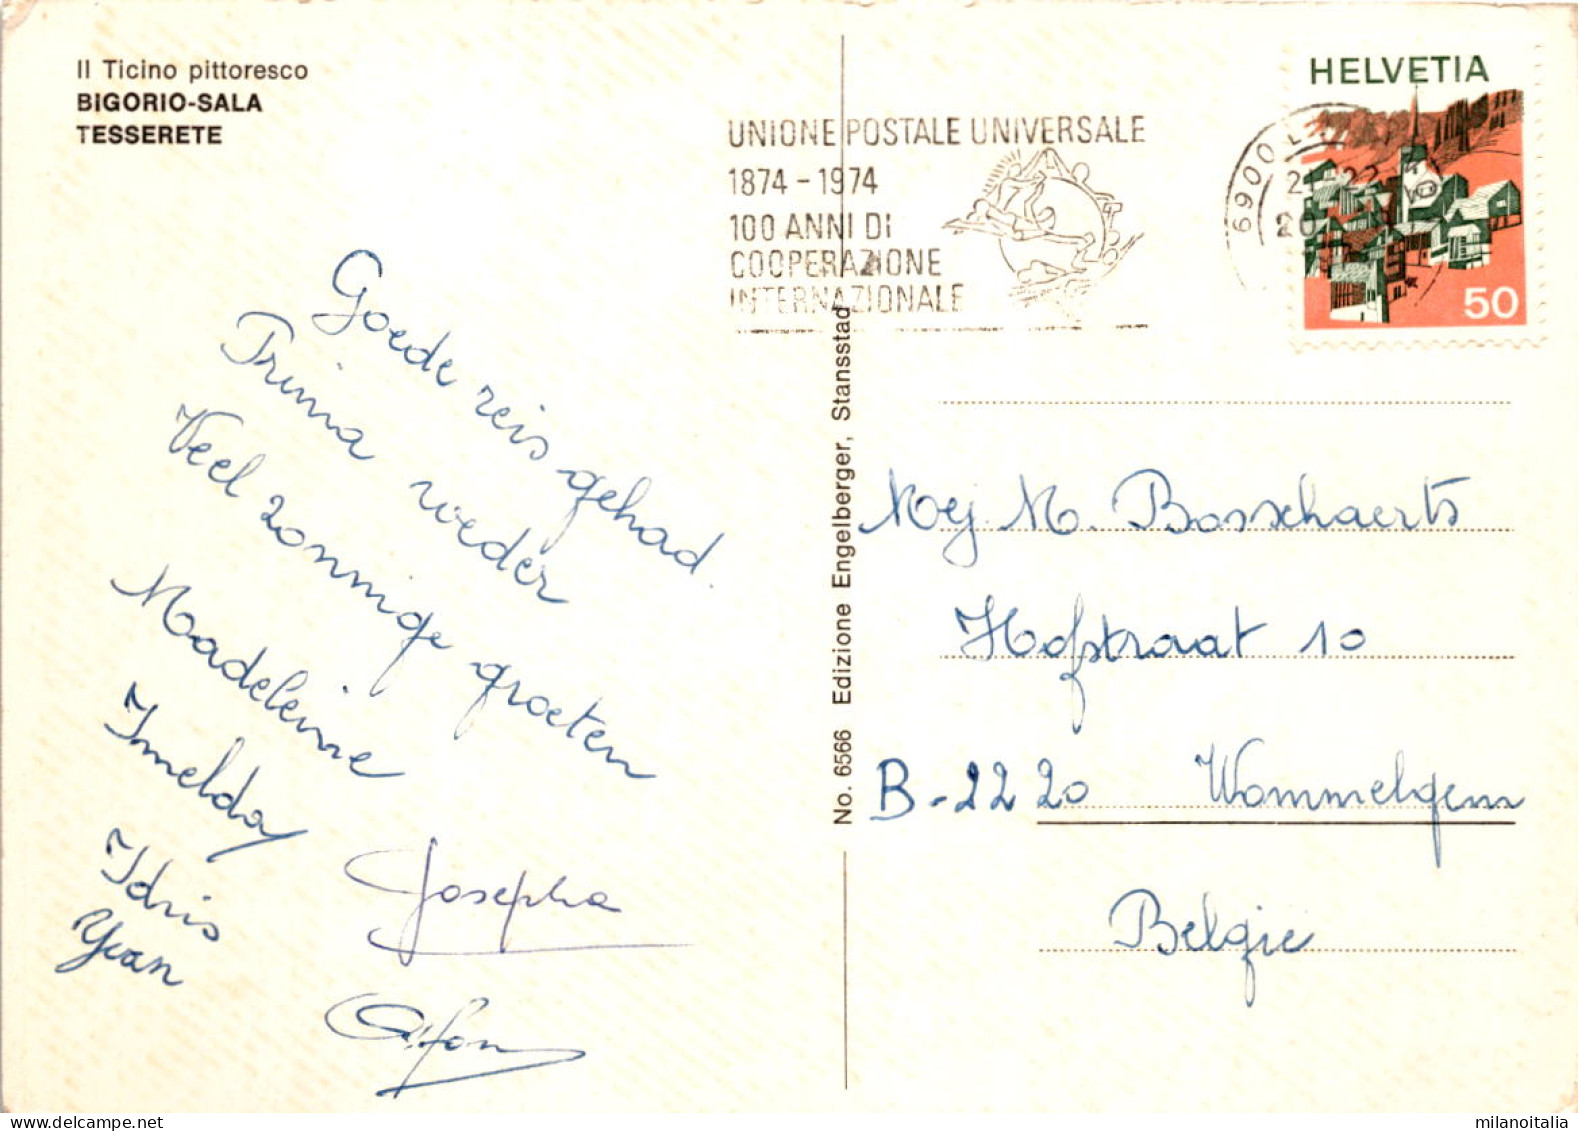 Il Ticino pittoresco
BIGORIO-SALA
TESSERETE
UNIONE POSTALE UNIVERSALE
1874 - 1974
100 ANNI DI
COOPERAZIONE
INTERNAZIONALE
6900
HELVETIA
50
Goede reis gehad.
Prima weder
Veel zonnige groeten
Madeleine
Imelda
Idris
Yvan
Josepha
Alfons
No. 6566 Edizione Engelberger, Stansstad
Mej. M. Bosschaerts
Hofstraat 10
B-2220 Wommelgem
Belgie
milanoitalia